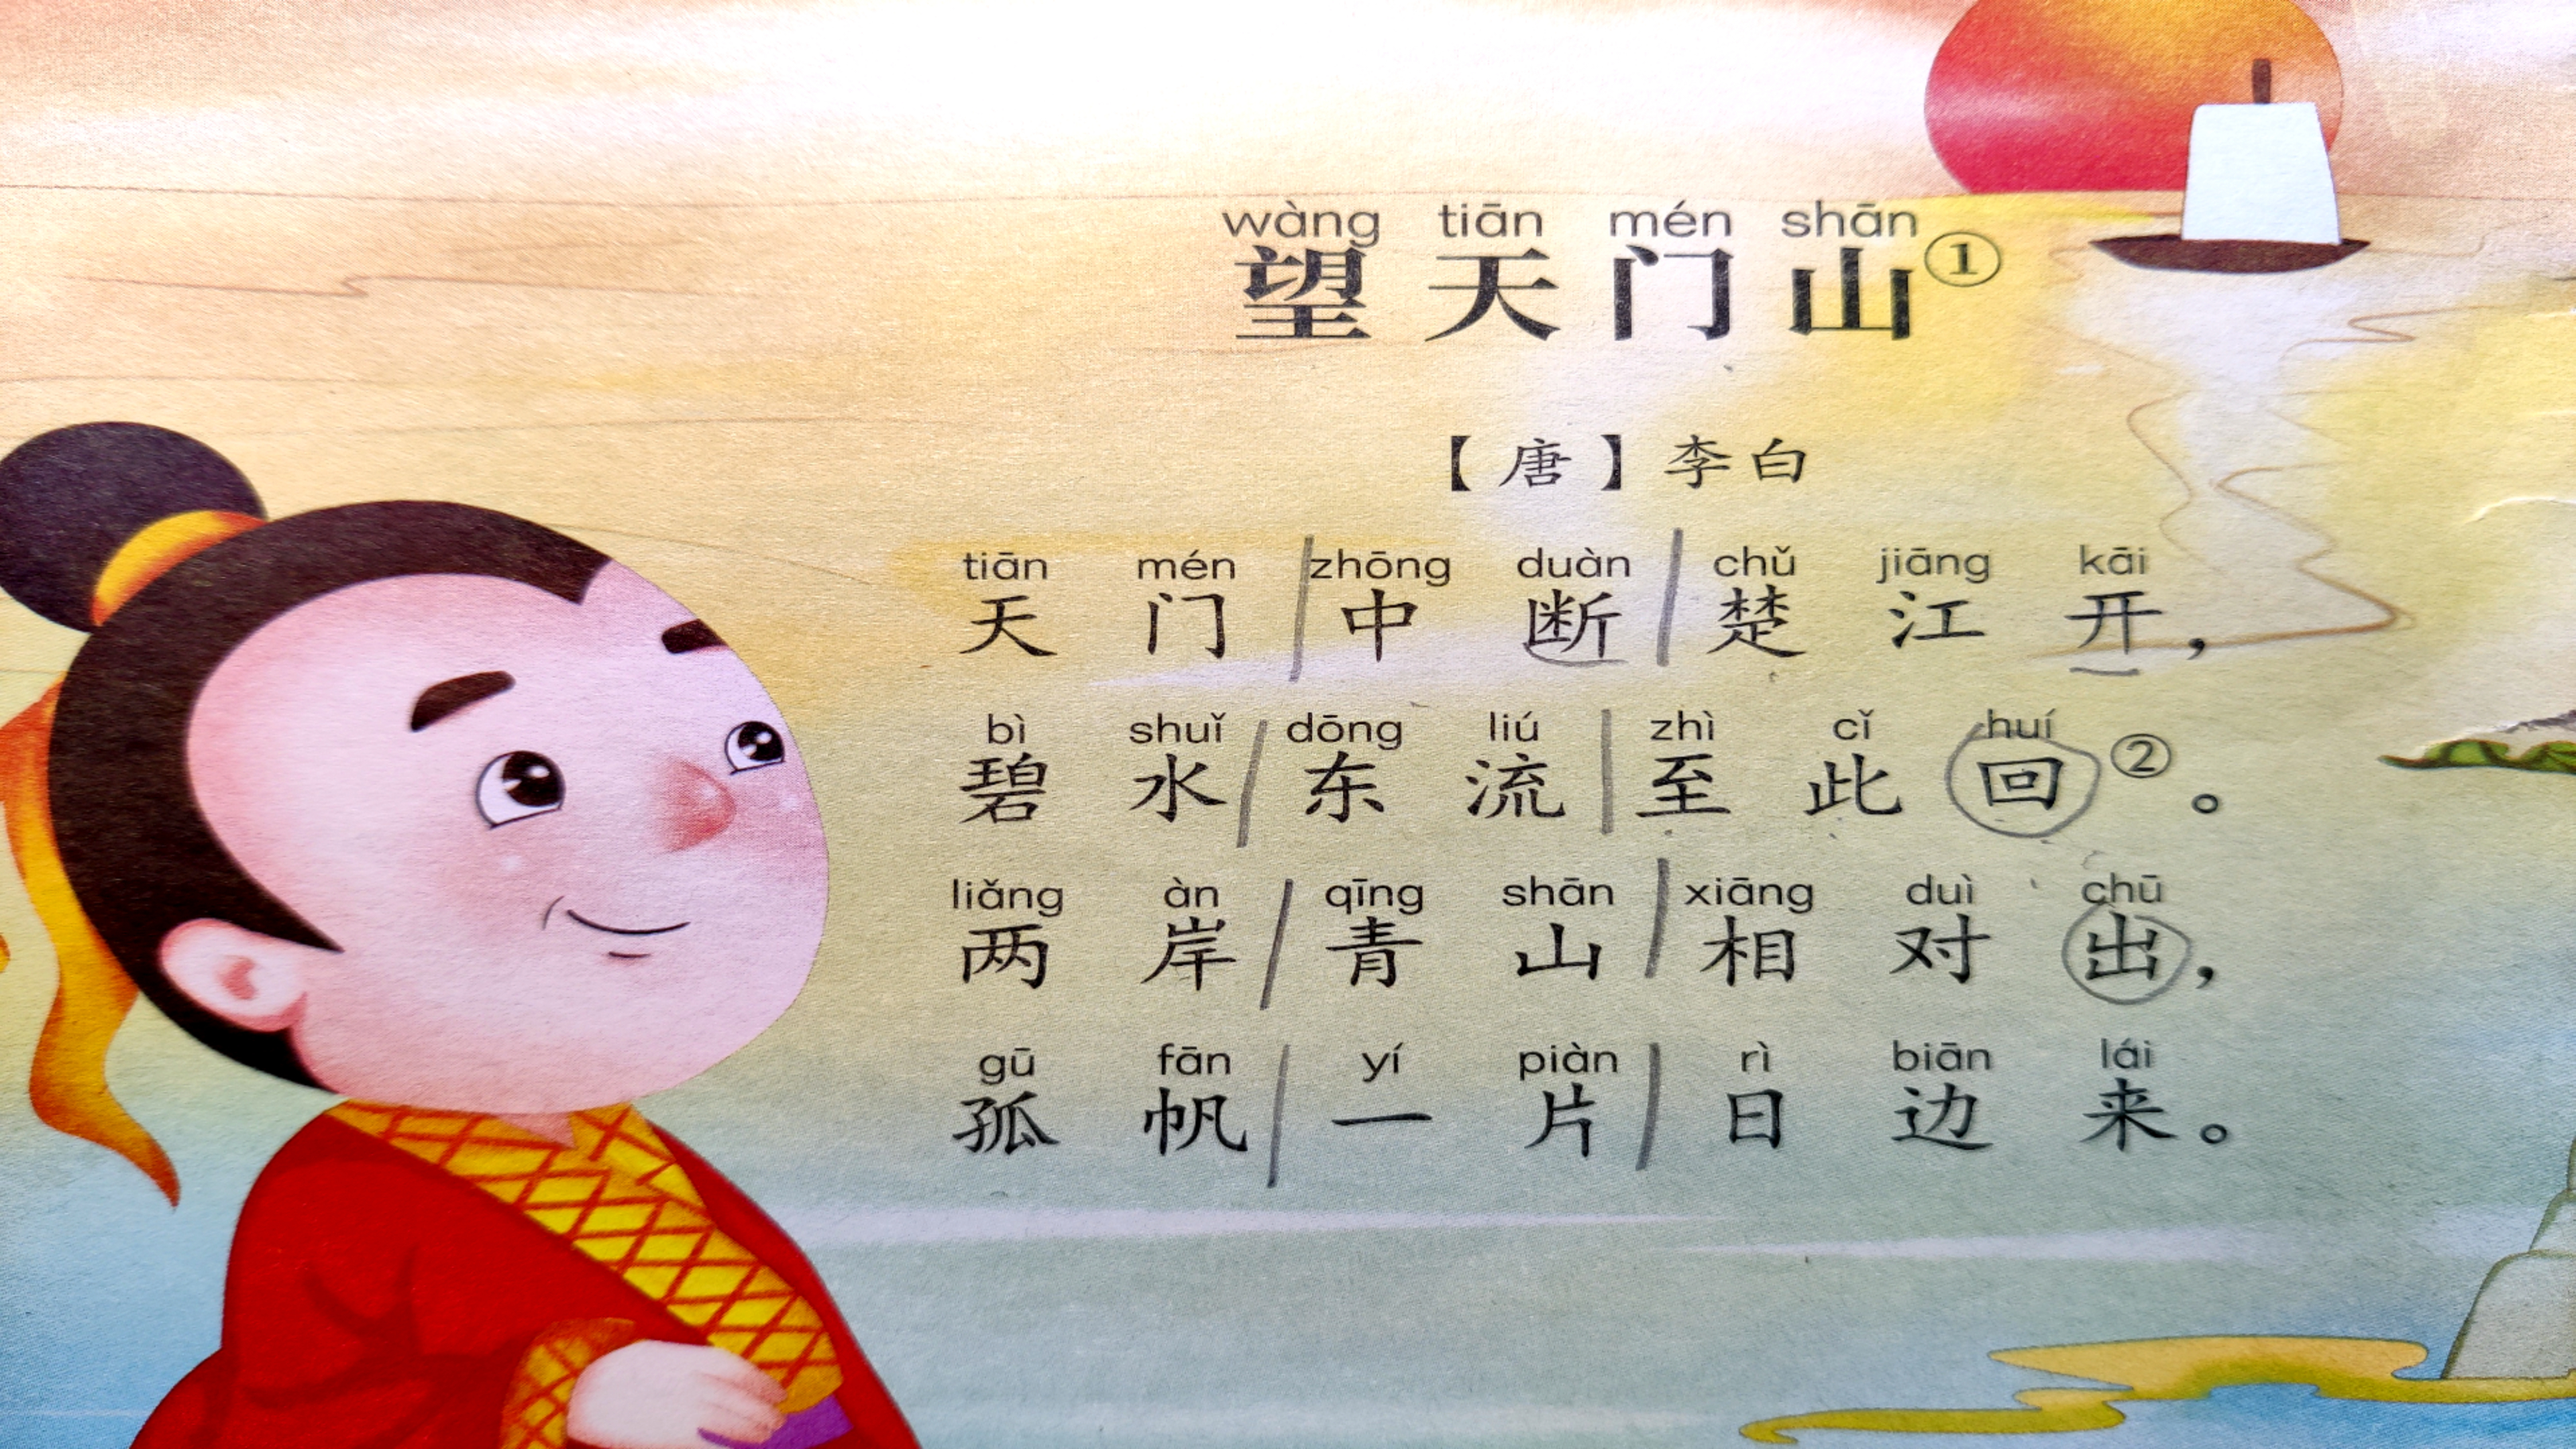 wàng tiān mén shān
望天门山①
【唐】李白
tiān mén zhōng duàn chǔ jiāng kāi
天门中断楚江开，
bì shuǐ dōng liú zhì cǐ huí
碧水东流至此回②。
liǎng àn qīng shān xiāng duì chū
两岸青山相对出，
gū fān yí piàn rì biān lái
孤帆一片日边来。